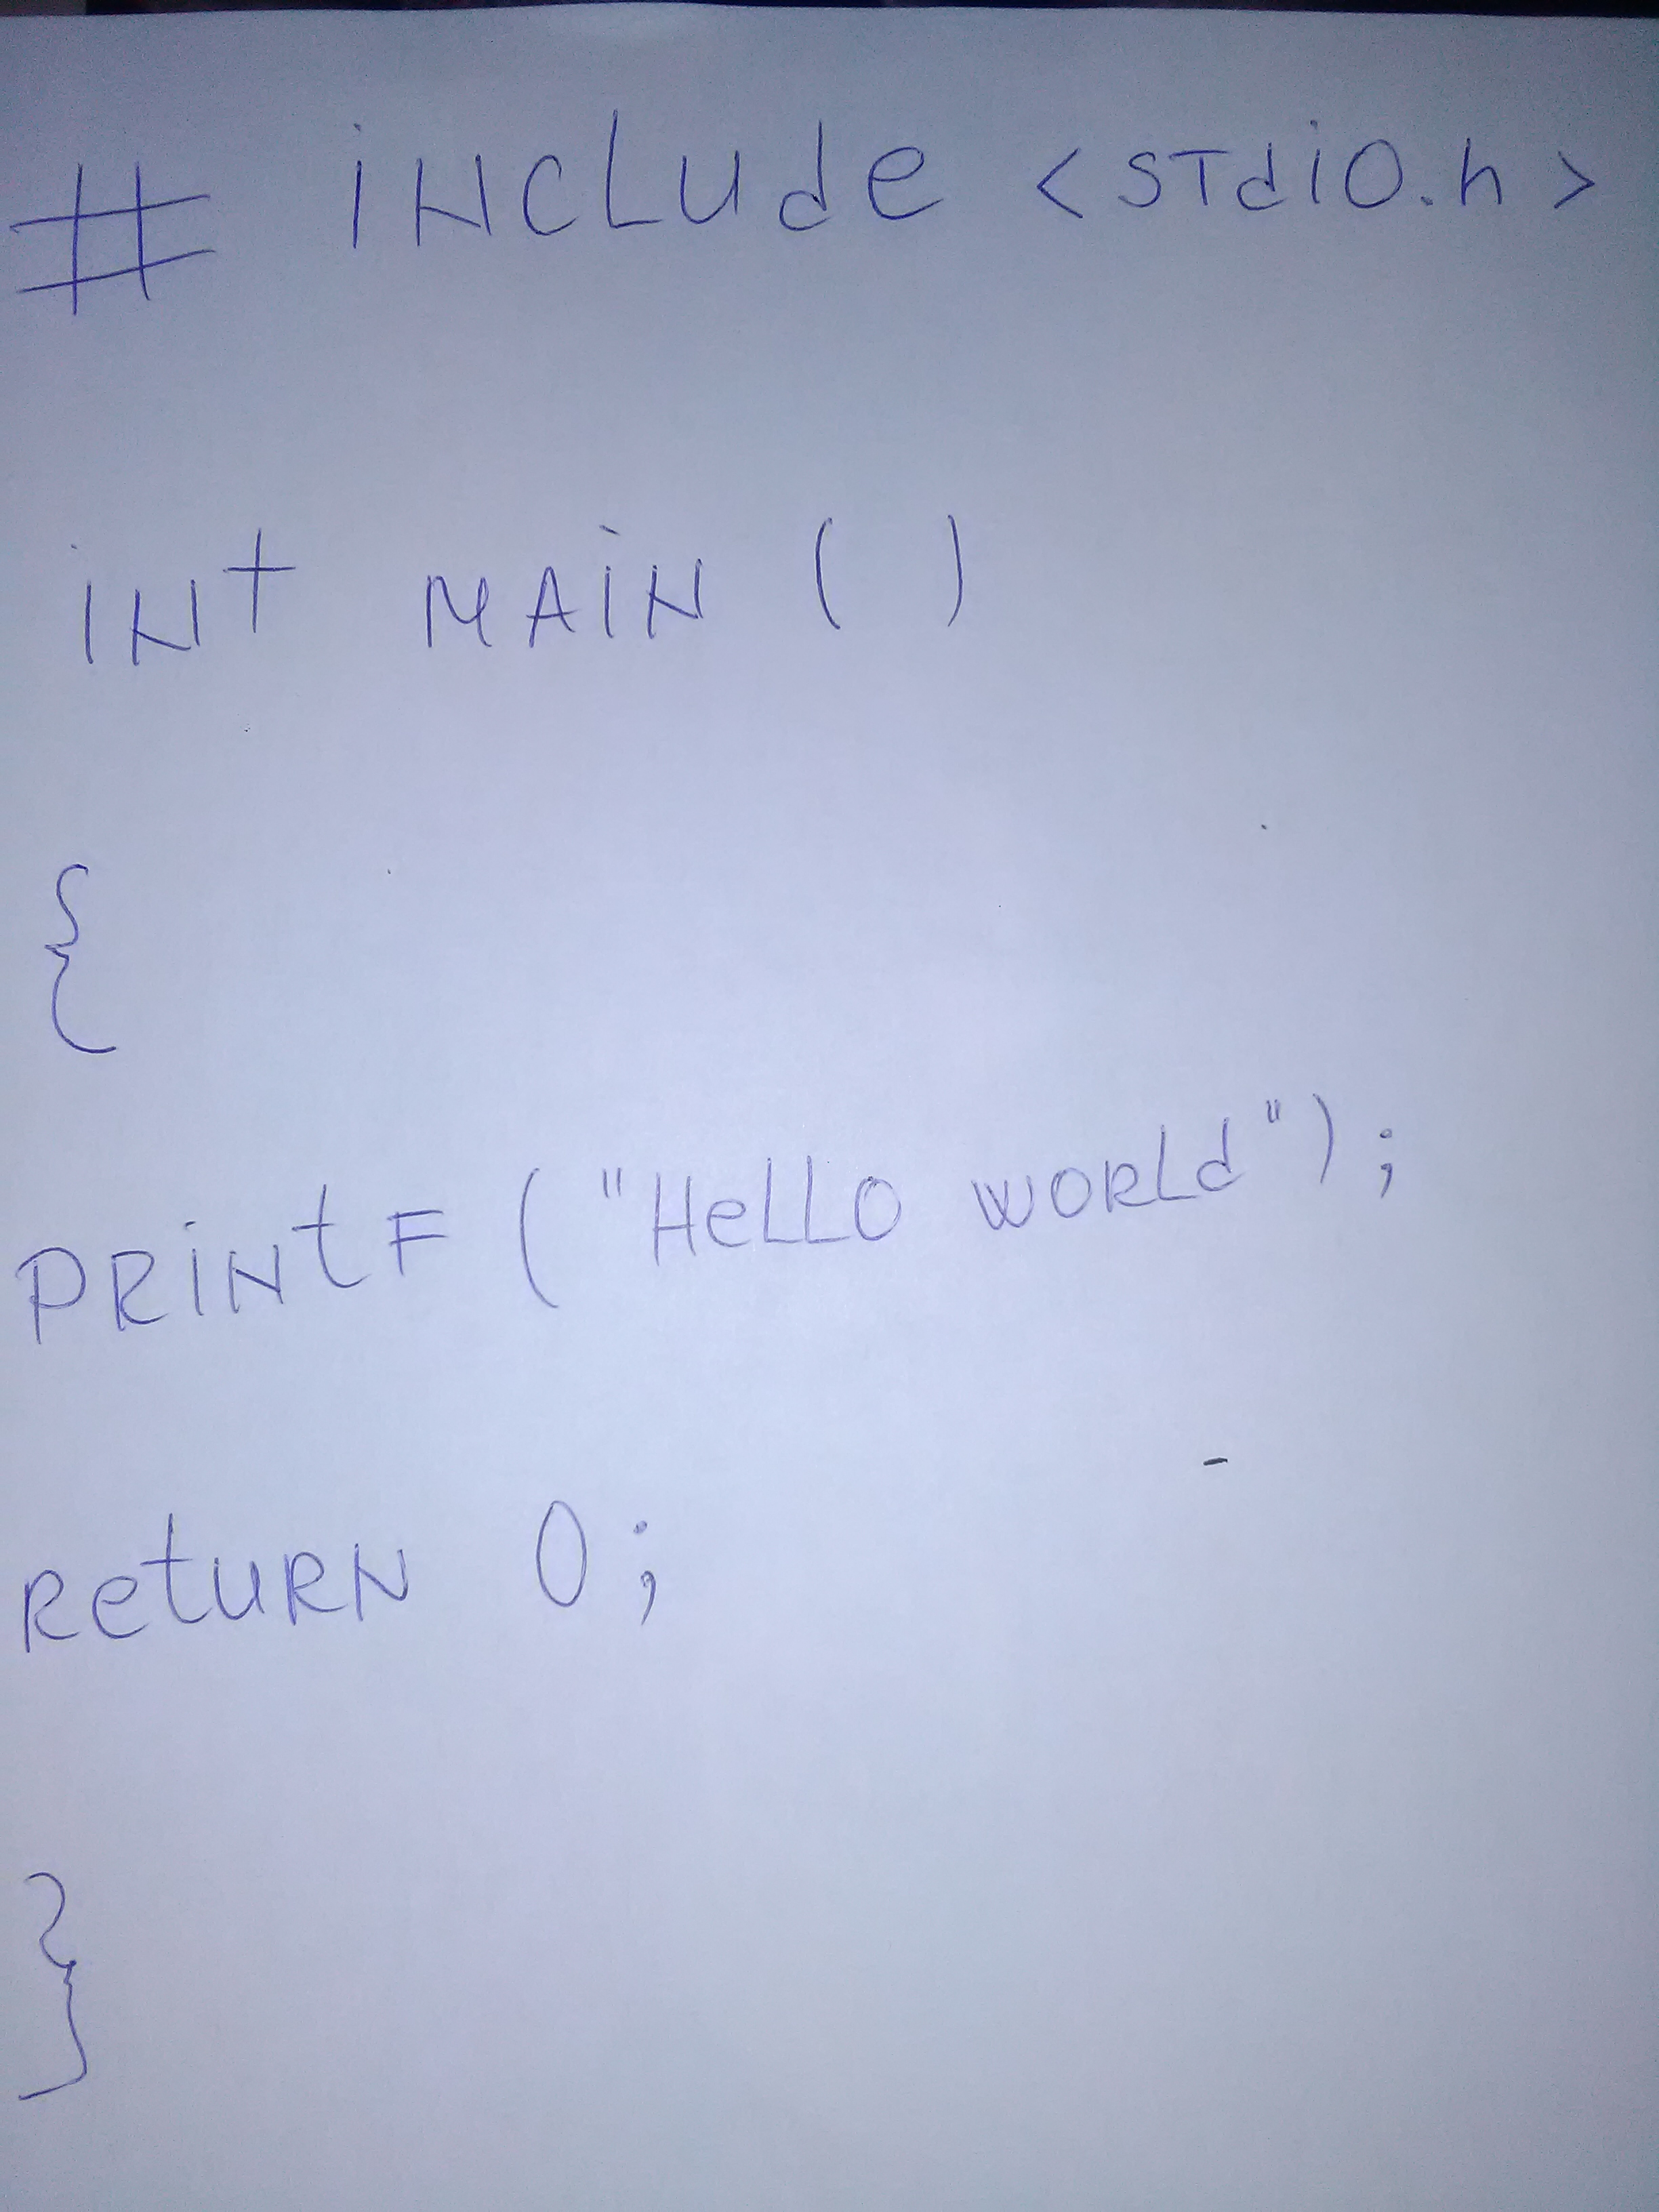 # include <stdio.h>
int main ( )
{
printf ("Hello world");
return 0;
}